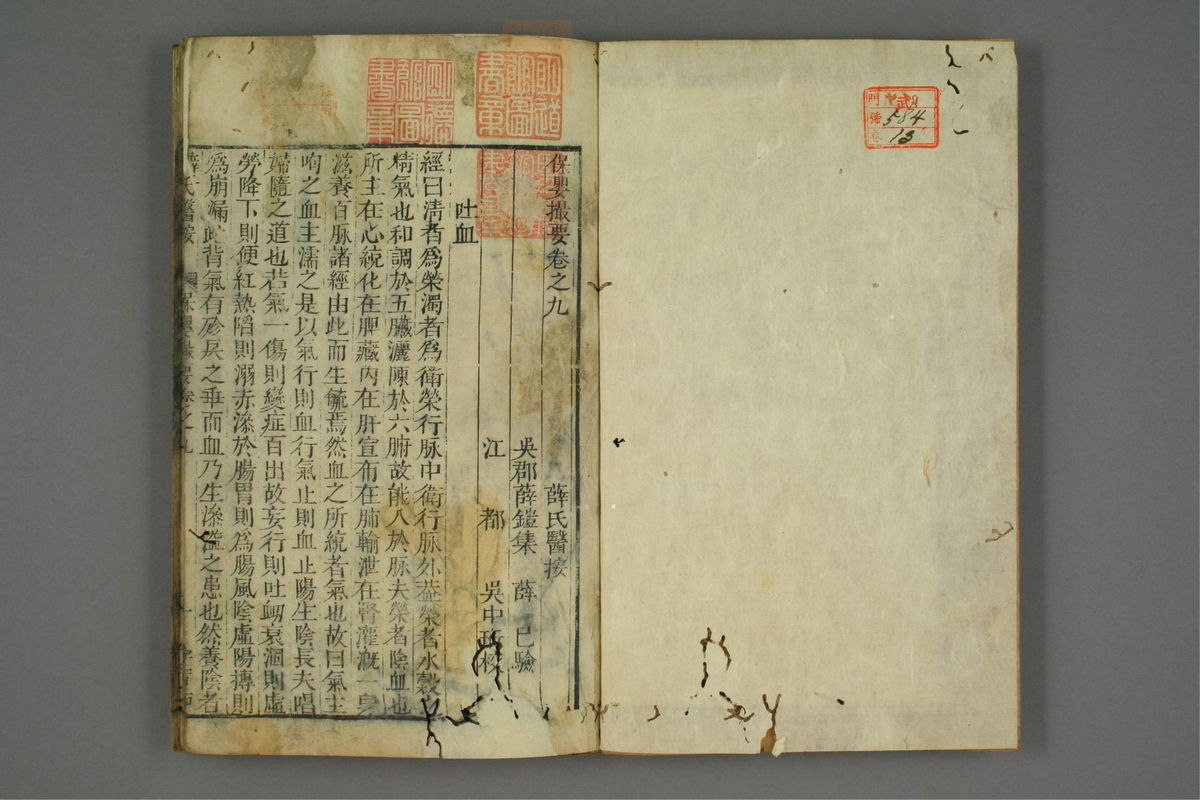 門 武
號 584
卷 13
保嬰撮要卷之九 薛氏醫按
吳郡薛鎧集 薛 己驗
江 都 吳中 校
吐血
經曰清者為榮濁者為衛榮行脉中衛行脉外葢榮者水穀
精氣也和調於五臟灑陳於六腑故能入於脉夫榮者陰血也
所主在心統化在脾藏內在肝宣布在肺輸泄在腎灌溉一身
滋養百脉諸經由此而生毓焉然血之所統者氣也故曰氣主
呴之血主濡之是以氣行則血行氣止則血止陽生陰長夫唱
婦隨之道也若氣一傷則變症百出故妄行則吐衂衰涸則虛
勞降下則便紅熱陷則溺赤滲於腸胃則為腸風陰虛陽搏則
為崩漏此背氣有 之乖而血乃生滲溢之患也然養陰者
薛氏醫按 保嬰撮要卷之九 一